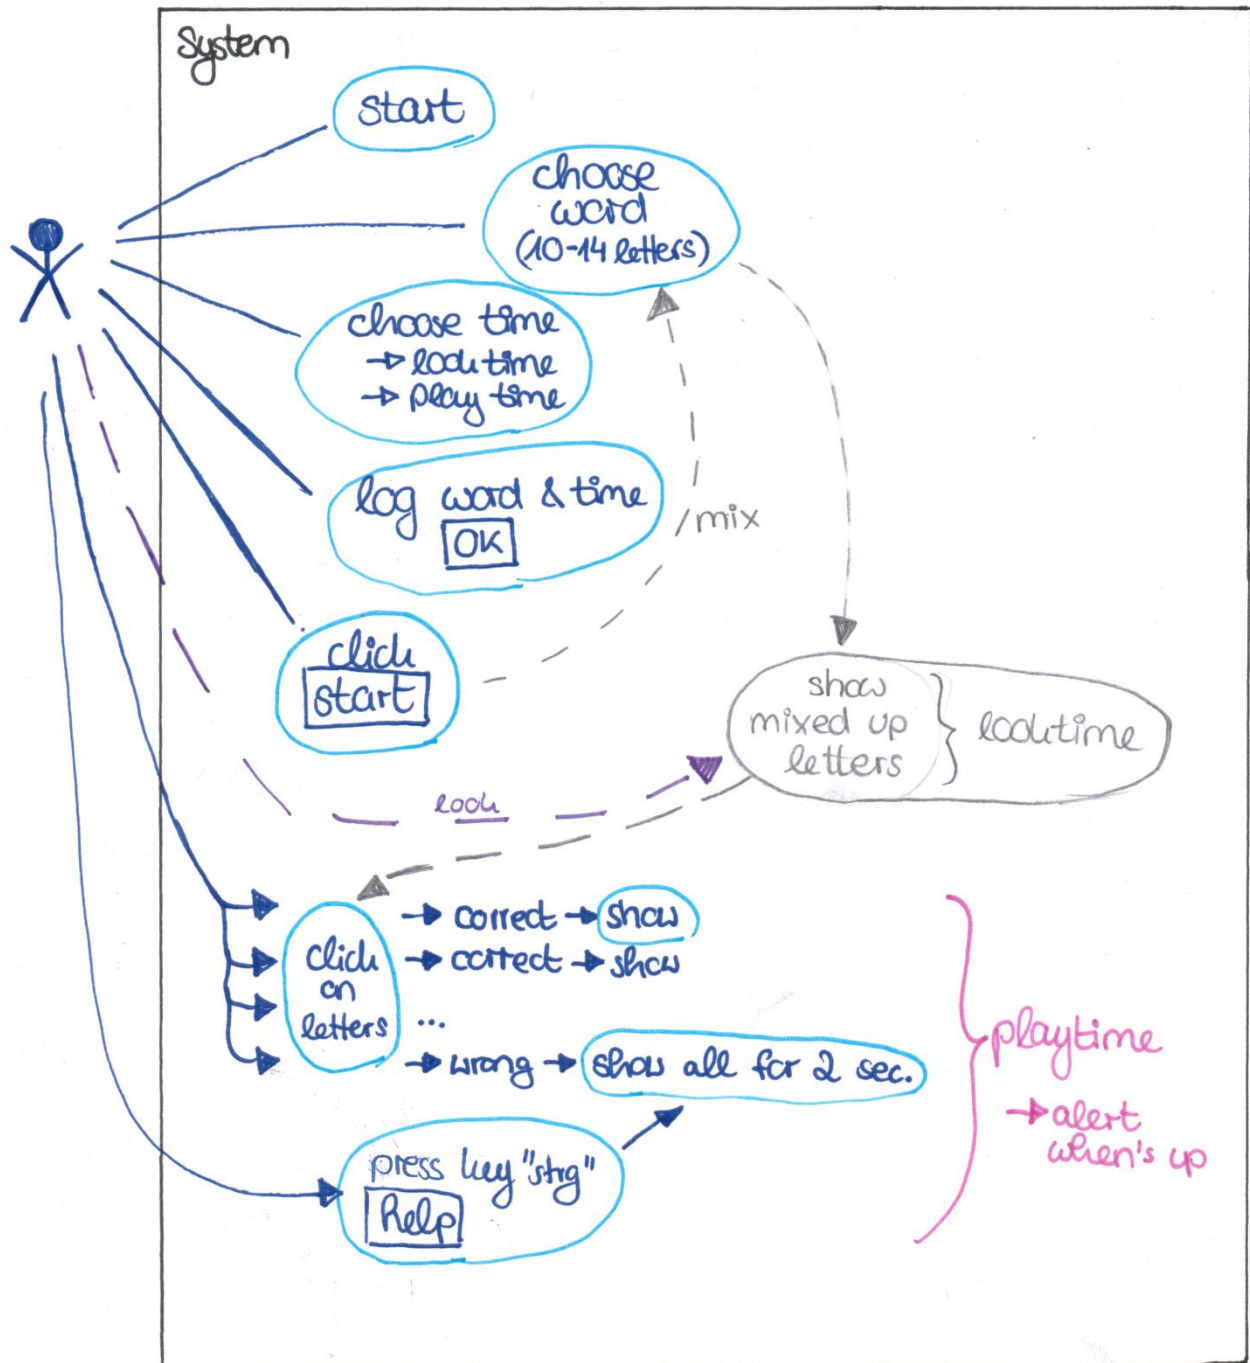 System
start
choose
word
(10-14 letters)
choose time
→ looktime
→ play time
log word & time
OK
/mix
click
start
show
mixed up
letters
looktime
look
click
on
letters
→ correct → show
→ correct → show
...
→ wrong → show all for 2 sec.
playtime
→ alert
when's up
press key "strg"
Help